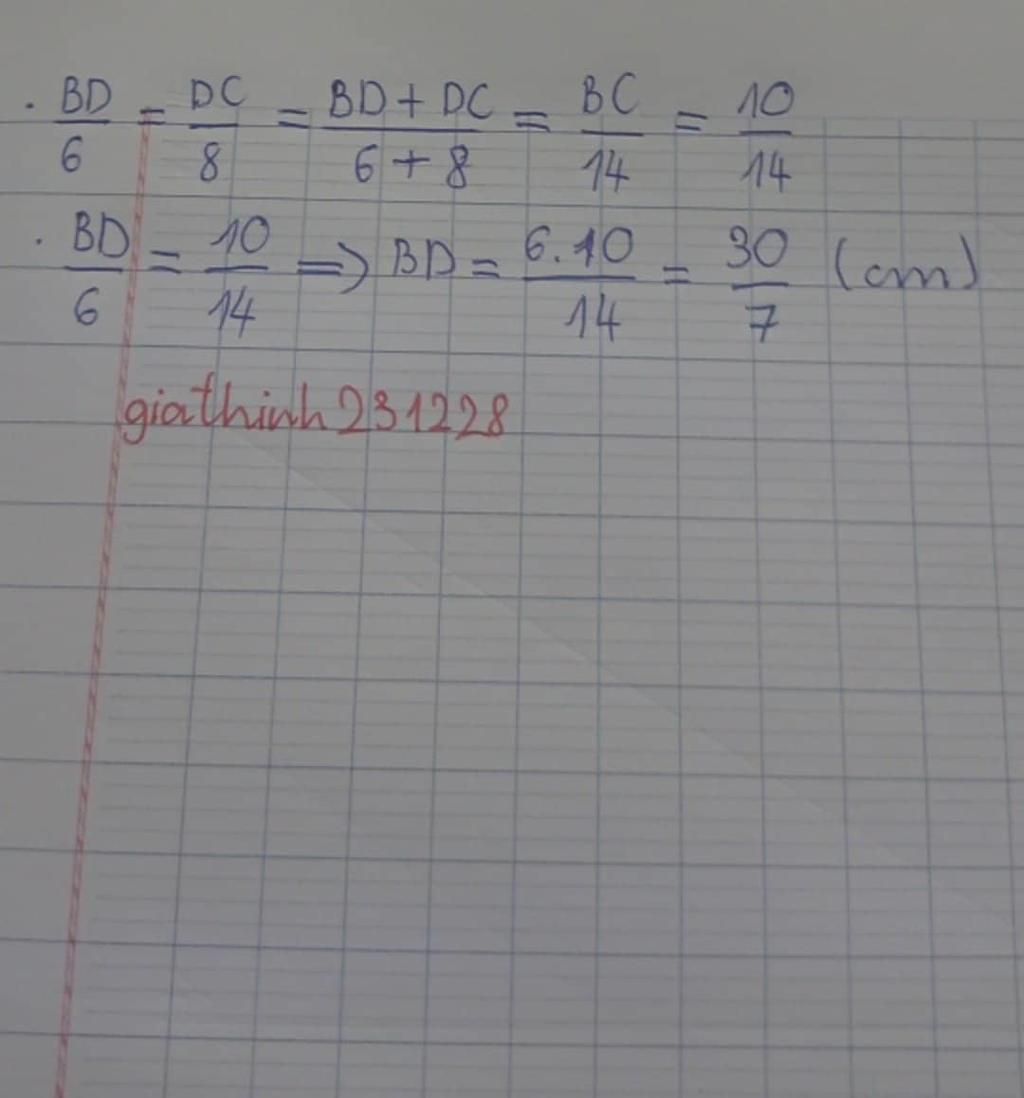 . BD/6 = DC/8 = BD + DC/6 + 8 = BC/14 = 10/14
. BD/6 = 10/14 => BD = 6.10/14 = 30/7 (cm)
giathinh231228